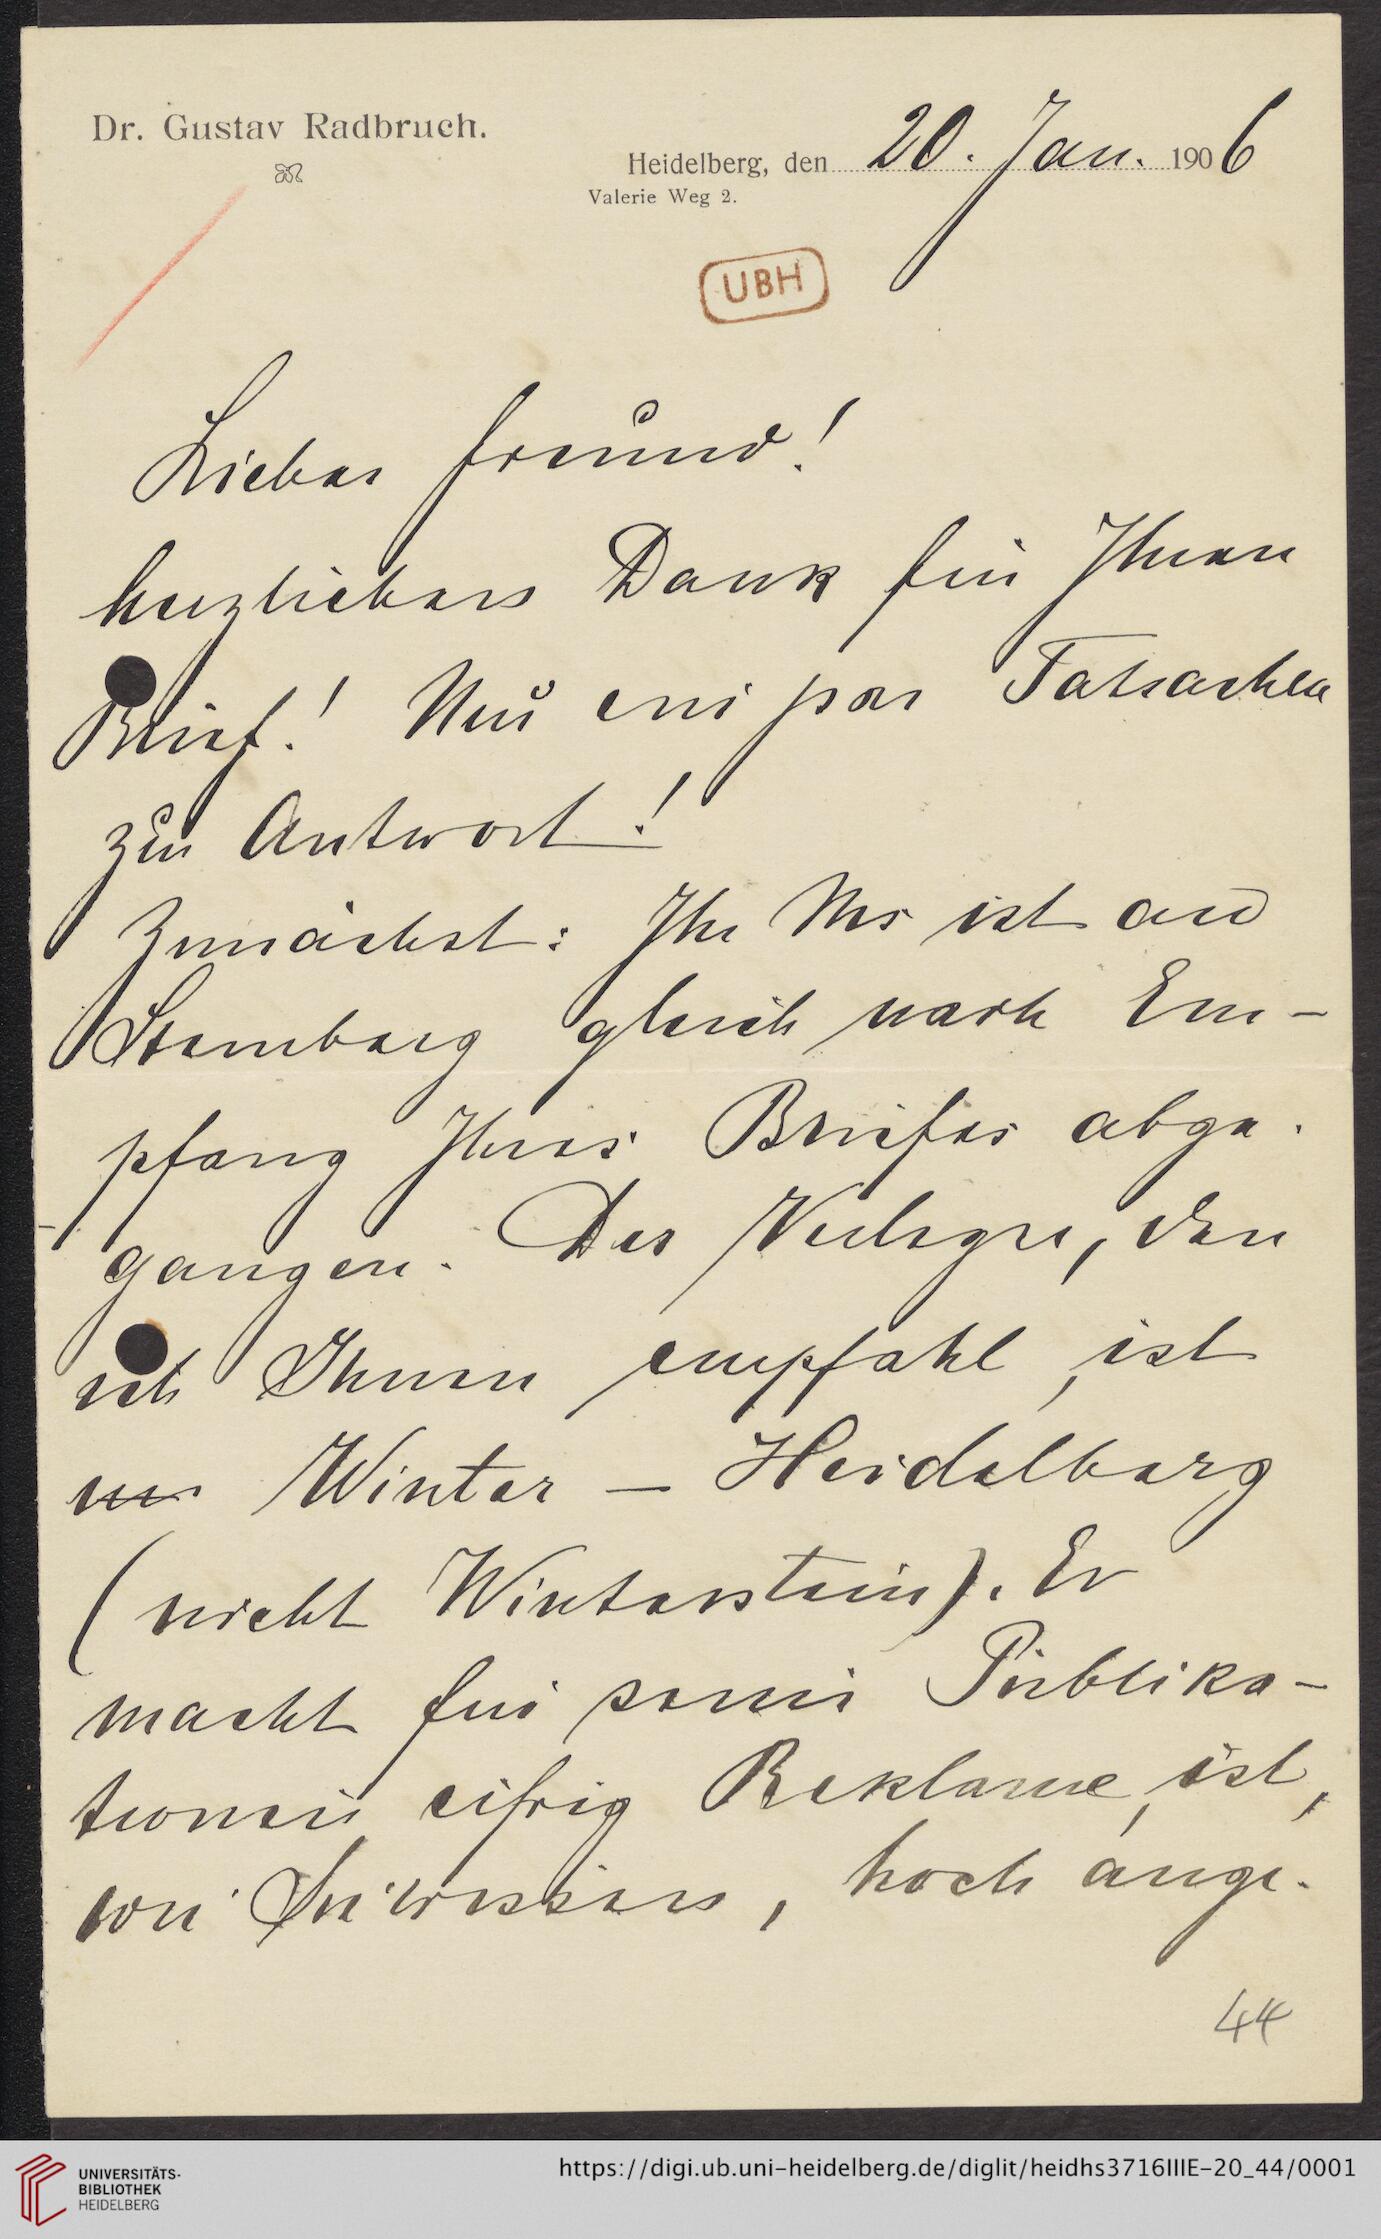 Dr. Gustav Radbruch.
Heidelberg, den 20. Jan. 1906
Valerie Weg 2.
UBH
Lieber Freund!
herzlichen Dank für Ihren
Brief! Nur ein par Tatsachen
zur Antwort!
Zunächst: Ihr Ms ist an
Sternberg gleich nach Em-
pfang Ihres Briefes abge-
gangen. Der Verleger, den
ich Ihnen empfahl, ist
Winter – Heidelberg
(nicht Winterstein). Er
macht für seine Publika-
tionen eifrig Reklame, ist,
wie Sie wissen, hoch ange-
44
UNIVERSITÄTS-
BIBLIOTHEK
HEIDELBERG
https://digi.ub.uni-heidelberg.de/diglit/heidhs3716IIIE-20_44/0001